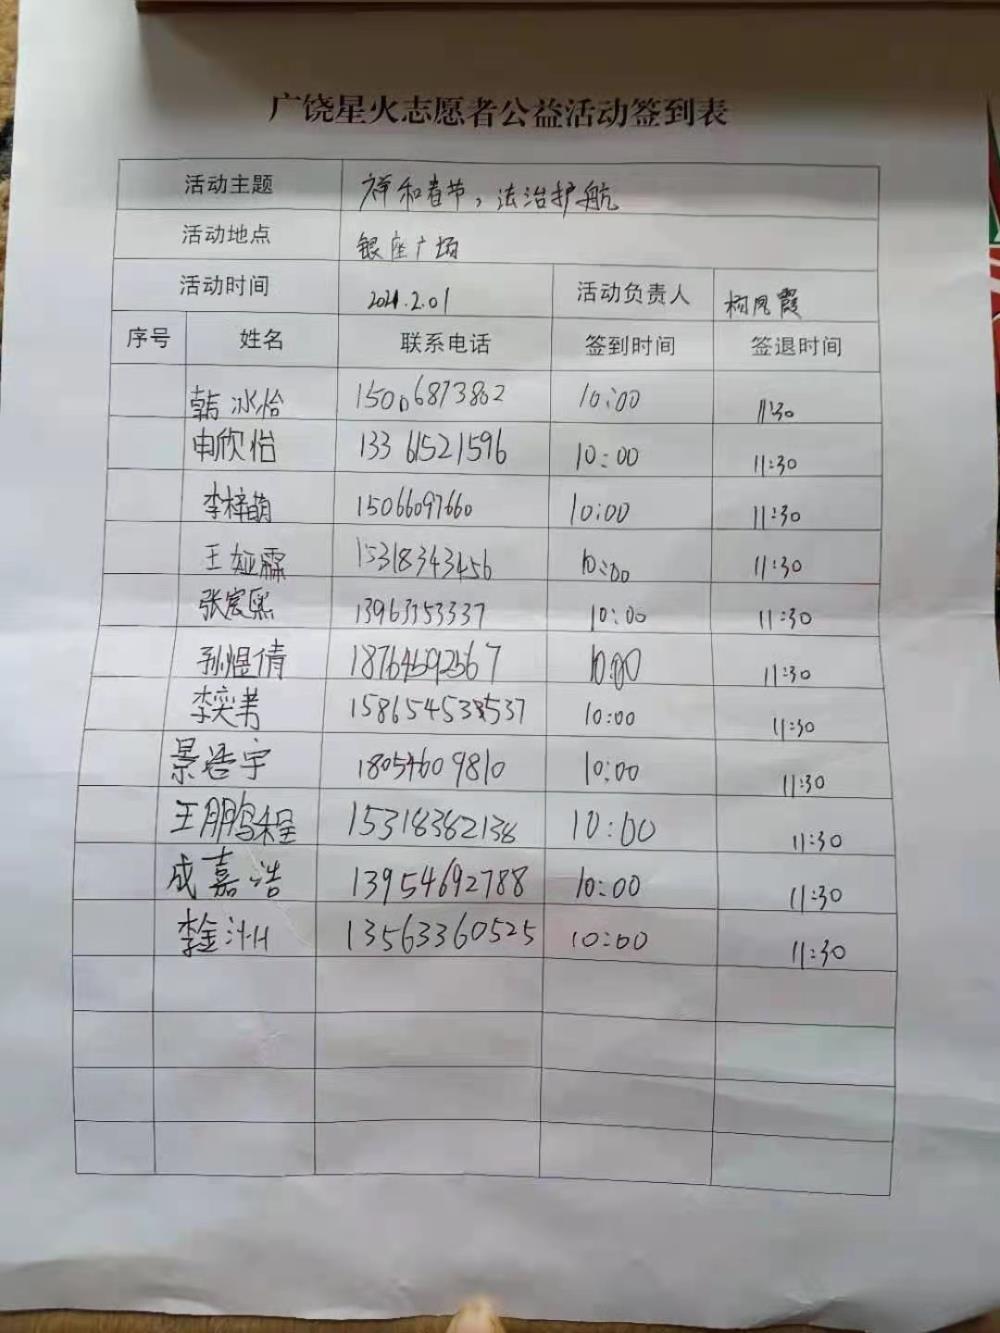 广饶星火志愿者公益活动签到表
活动主题 祥和春节，法治护航
活动地点 银座广场
活动时间 2021.2.01 活动负责人 杨凤霞
序号 姓名 联系电话 签到时间 签退时间
韩冰怡 15006873802 10:00 11:30
申欣怡 13361521596 10:00 11:30
李梓萌 15066097660 10:00 11:30
王娅霖 15318343456 10:00 11:30
张宸熙 13963353337 10:00 11:30
孙煜倩 18764592567 10:00 11:30
李奕 10:00 11:30
景浩宇 18054609810 10:00 11:30
王鹏程 15318382138 10:00 11:30
成嘉浩 13954692788 10:00 11:30
李金汁H 13563360525 10:00 11:30